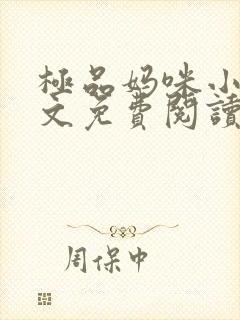 極品妈咪小
文免費閱讀
周保中